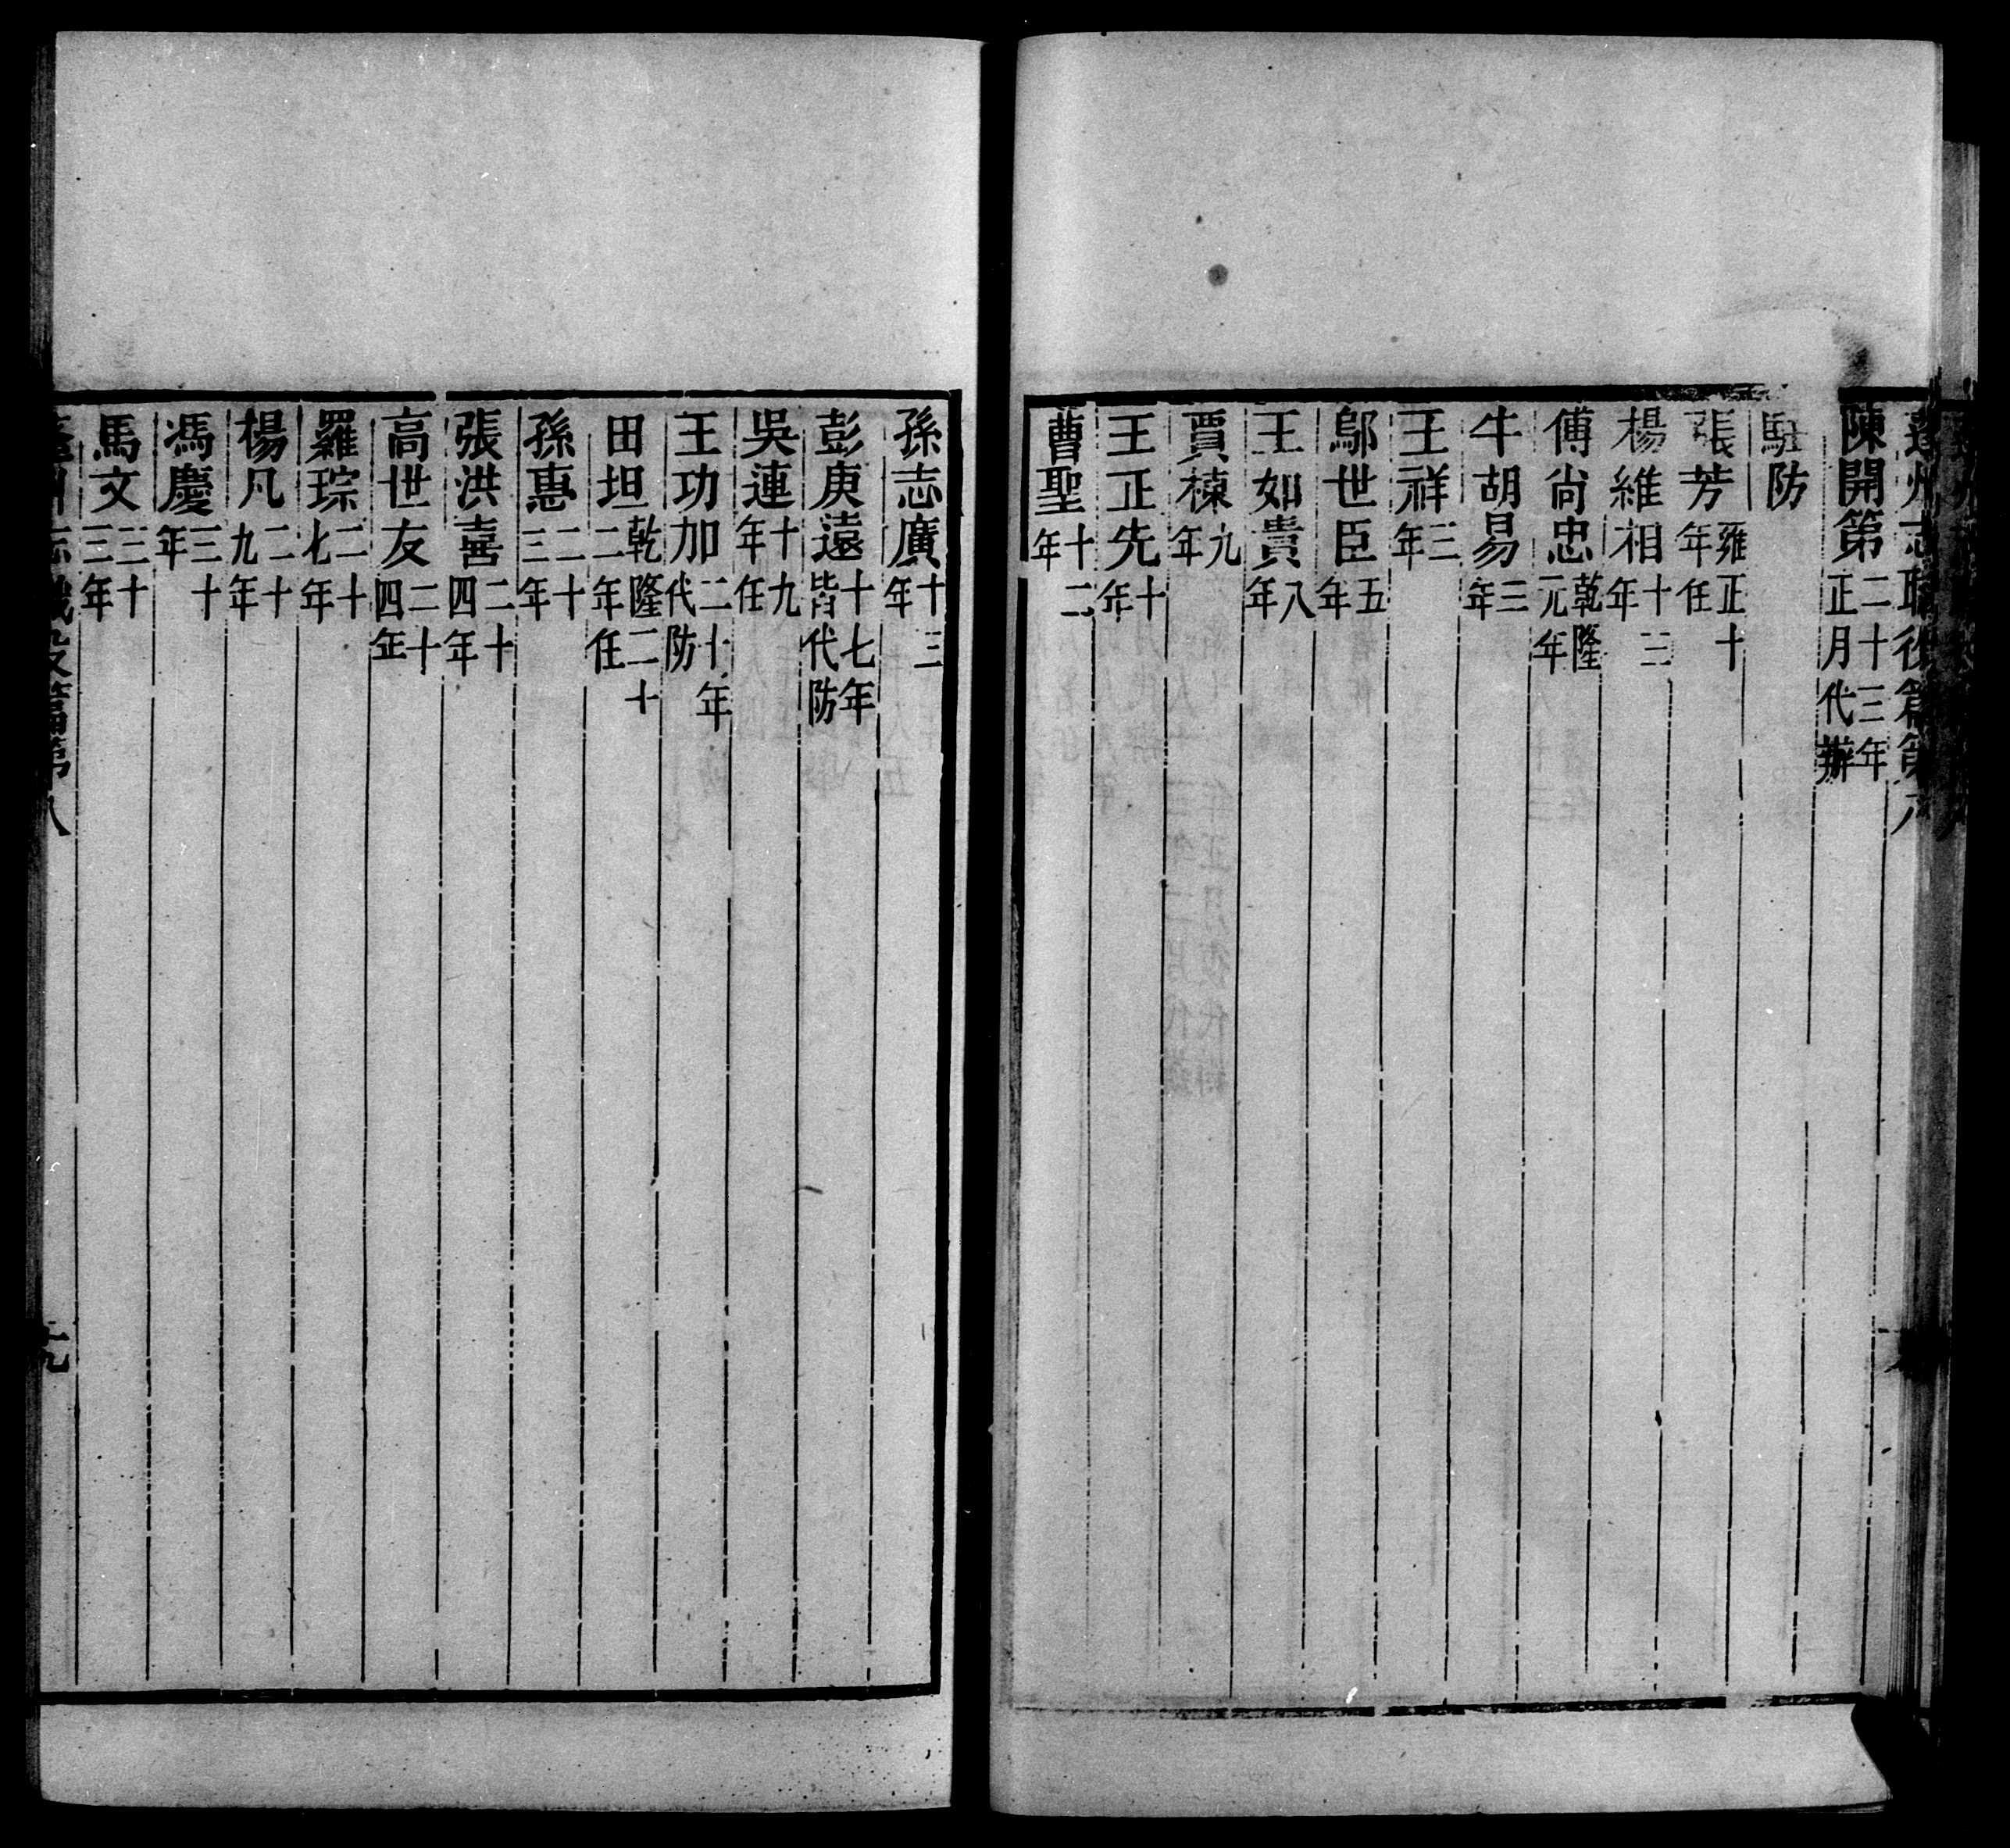 蓬州志職役篇第八
陳開第二十三年正月代辦
駐防
張芳雍正十年任
楊維相十三年
傅尚忠乾隆元年
牛胡易三年
王祥三年
鄔世臣五年
王如貴八年
賈棟九年
王正先十年
曹聖十二年
孫志廣十三年
彭庚遠十七年皆代防
吳連十九年任
王功加二十年代防
田坦乾隆二十二年任
孫惠二十三年
張洪喜二十四年
高世友二十四年
羅琮二十七年
楊凡二十九年
馮慶三十年
馬文三十三年
蓬州志職役篇第八